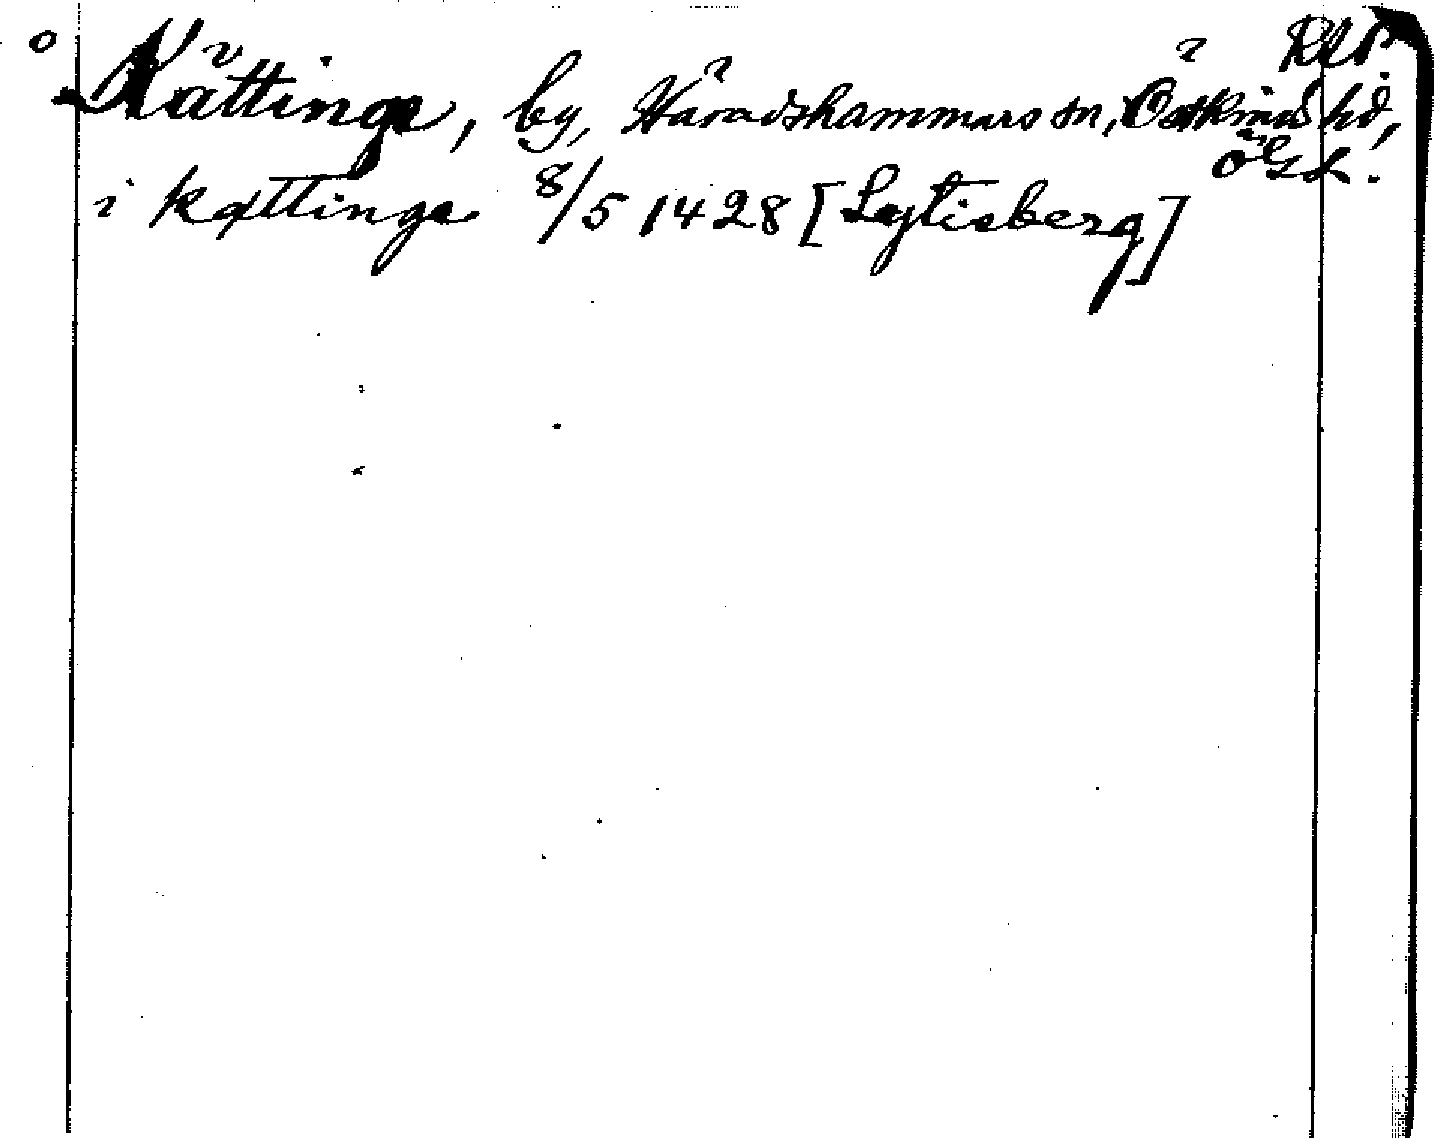 Kättinge, by, Häradshammars sn, Östkinds hd,
ÖGL.
i kættinge 8/5 1428 [Lytisberg]